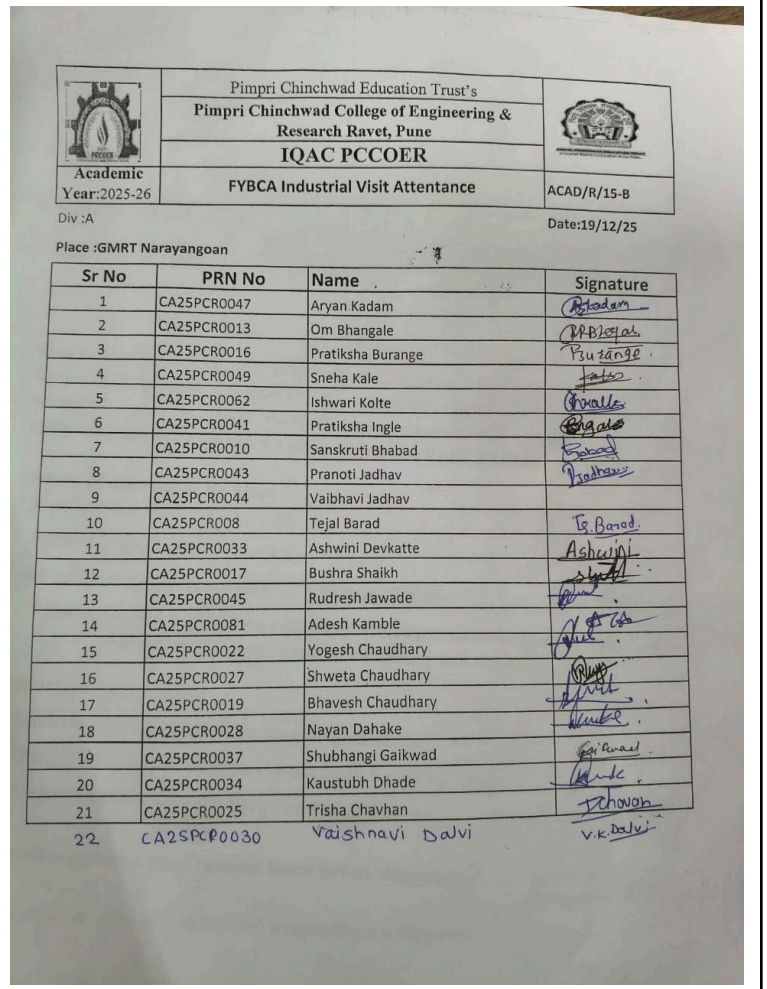 Pimpri Chinchwad Education Trust's
Pimpri Chinchwad College of Engineering &
Research Ravet, Pune
IQAC PCCOER
PCCOER
Academic
Year:2025-26
FYBCA Industrial Visit Attentance
ACAD/R/15-B
Div :A
Date:19/12/25
Place :GMRT Narayangoan
Sr No PRN No Name Signature
1 CA25PCR0047 Aryan Kadam
2 CA25PCR0013 Om Bhangale
3 CA25PCR0016 Pratiksha Burange Burange
4 CA25PCR0049 Sneha Kale
5 CA25PCR0062 Ishwari Kolte
6 CA25PCR0041 Pratiksha Ingle
7 CA25PCR0010 Sanskruti Bhabad
8 CA25PCR0043 Pranoti Jadhav
9 CA25PCR0044 Vaibhavi Jadhav
10 CA25PCR008 Tejal Barad Tg.Barad.
11 CA25PCR0033 Ashwini Devkatte Ashwini
12 CA25PCR0017 Bushra Shaikh
13 CA25PCR0045 Rudresh Jawade
14 CA25PCR0081 Adesh Kamble
15 CA25PCR0022 Yogesh Chaudhary
16 CA25PCR0027 Shweta Chaudhary
17 CA25PCR0019 Bhavesh Chaudhary
18 CA25PCR0028 Nayan Dahake
19 CA25PCR0037 Shubhangi Gaikwad
20 CA25PCR0034 Kaustubh Dhade
21 CA25PCR0025 Trisha Chavhan
22 CA25PCR0030 Vaishnavi Dalvi V.K.Dalvi